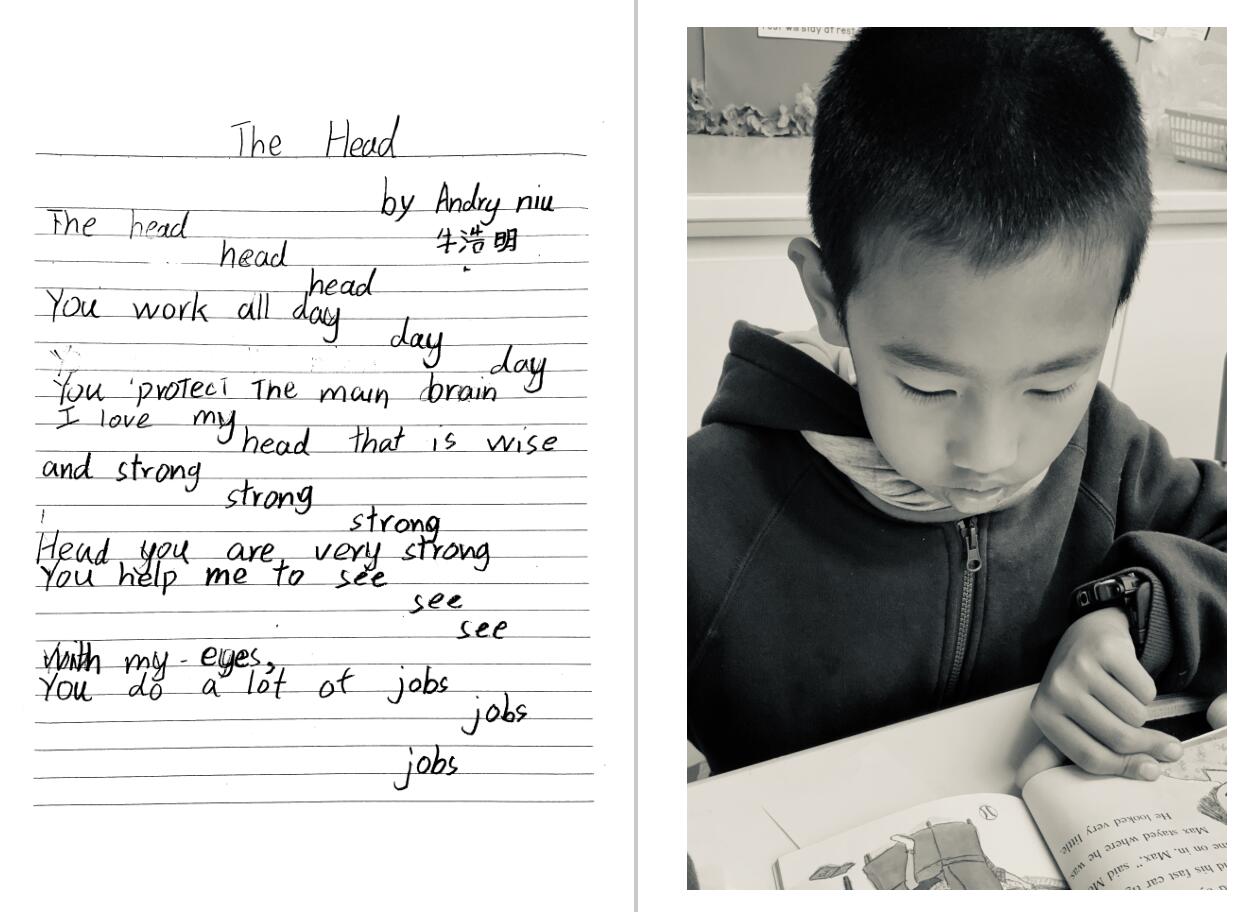 The Head
by Andry niu
牛浩明
The head
head
head
You work all day
day
day
You protect The main brain
I love my
head that is wise
and strong
strong
strong
Head you are very strong
You help me to see
see
see
With my eyes,
You do a lot of jobs
jobs
jobs
rest will stay at rest
He looked very little.
Max stayed where he was.
me on in, Max," said
his fast car